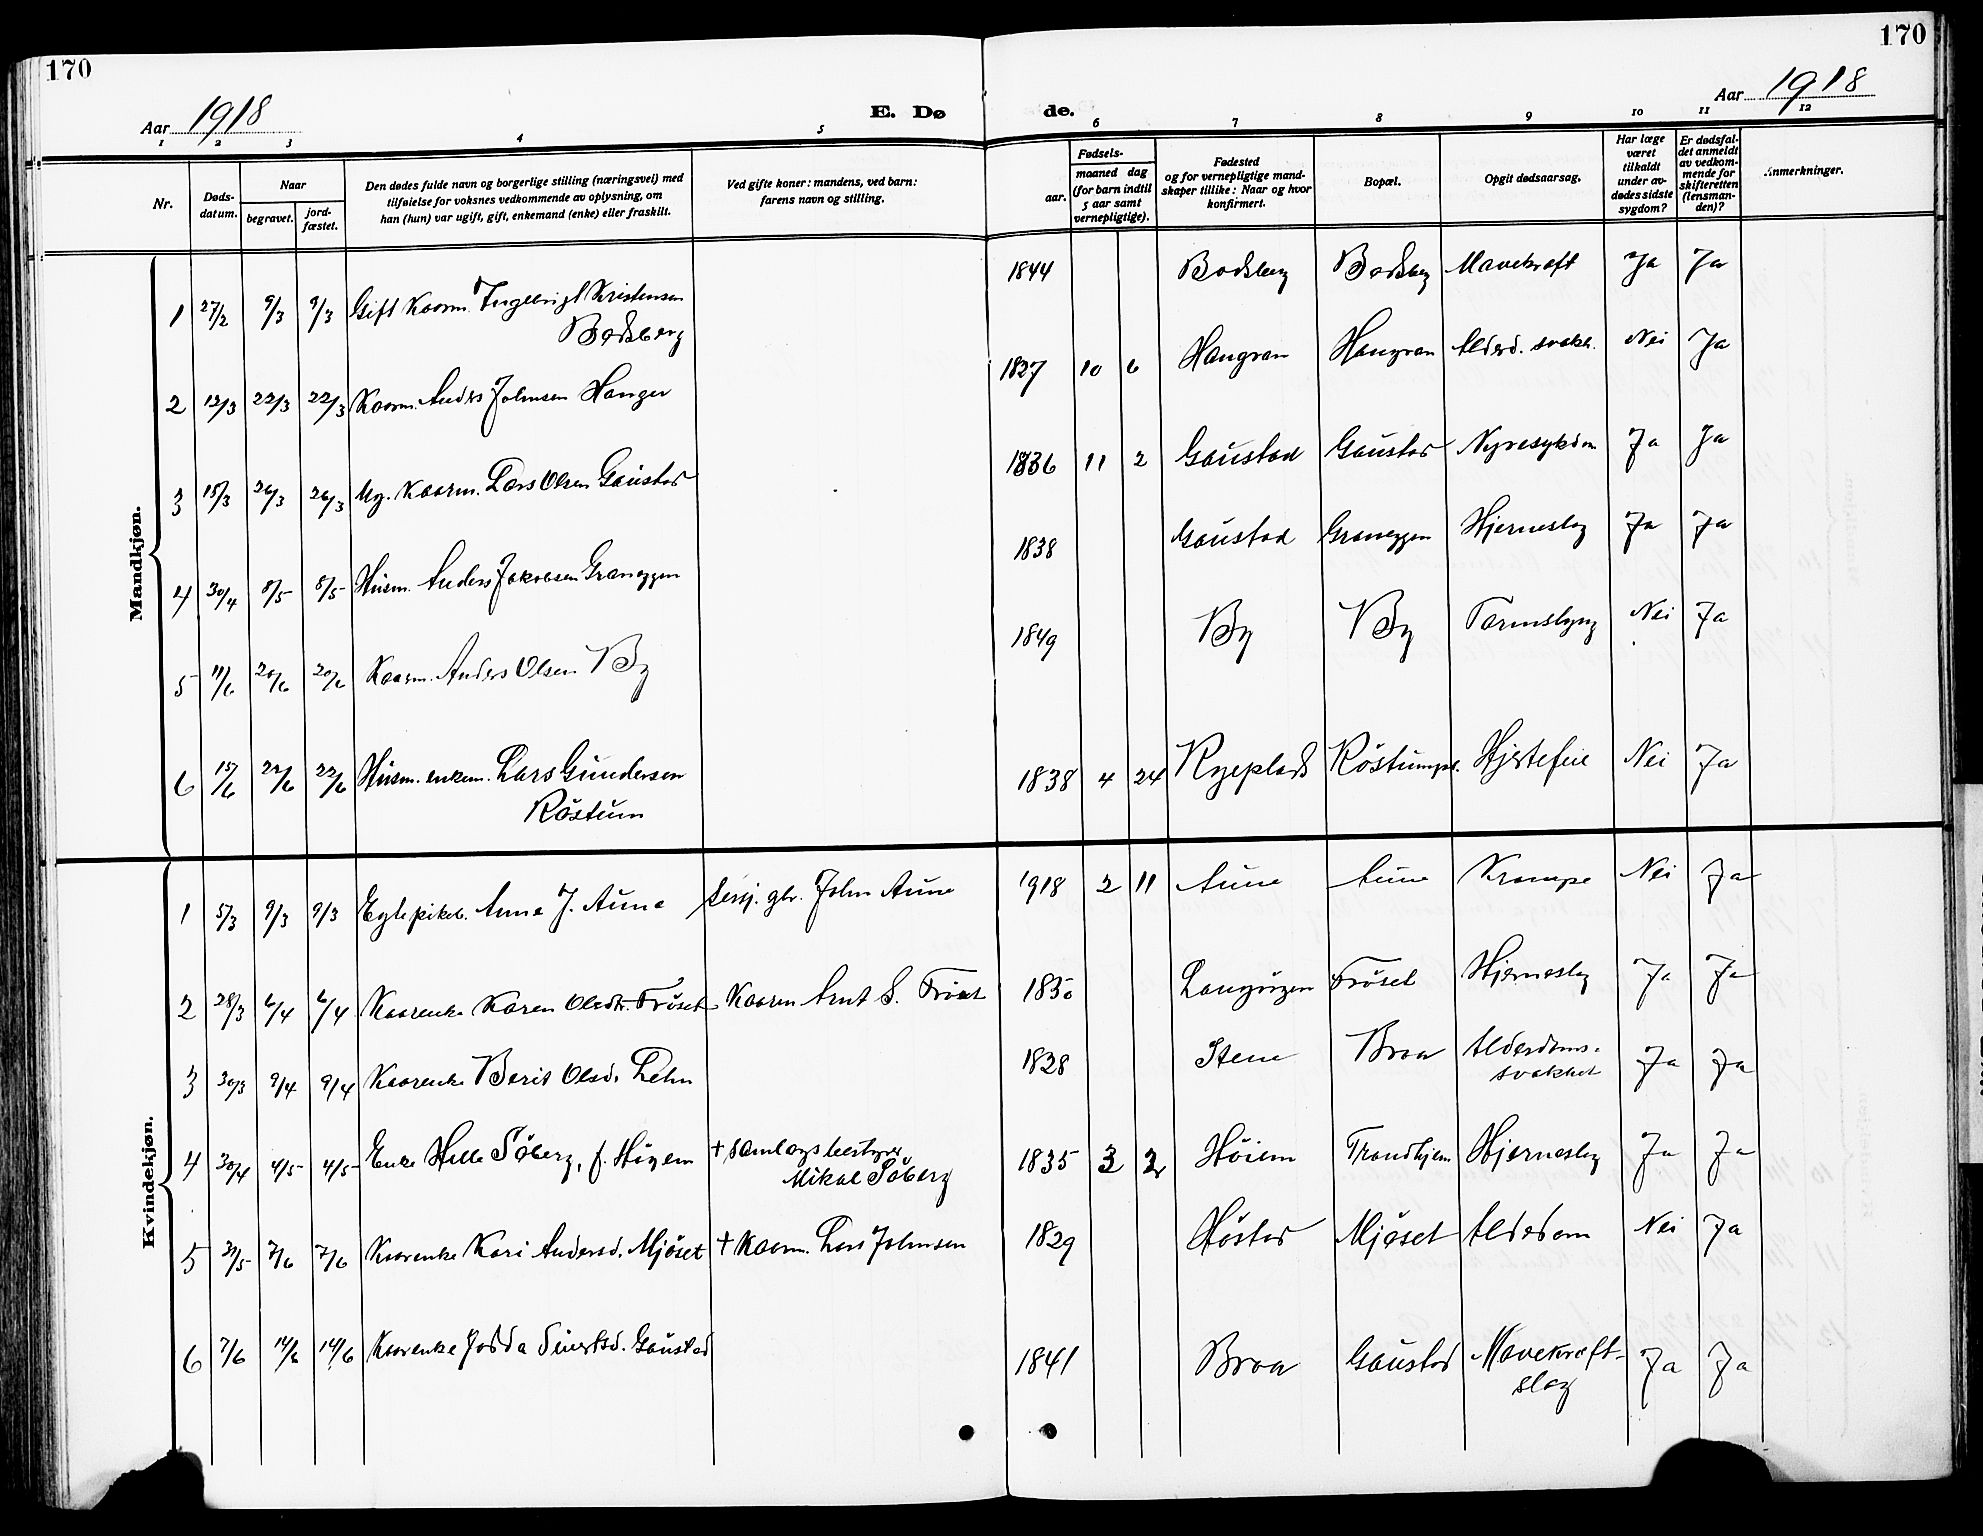 170
170
Aar 1918
E. Dø
de.
Aar 1918
1 2 3 4 5 6 7 8 9 10 11 12
Nr.
Døds-
datum.
Naar
begravet.
jord-
fæstet.
Den dødes fulde navn og borgerlige stilling (næringsvei) med
tilføielse for voksnes vedkommende av oplysning, om
han (hun) var ugift, gift, enkemand (enke) eller fraskilt.
Ved gifte koner: mandens, ved barn:
farens navn og stilling.
Fødsels-
aar.
maaned dag
(for barn indtil
5 aar samt
vernepligtige).
Fødested
og for vernepligtige mand-
skaper tillike: Naar og hvor
konfirmert.
Bopæl.
Opgit dødsaarsag.
Har læge
været
tilkaldt
under av-
dødes sidste
sygdom?
Er dødsfal-
det anmeldt
av vedkom-
mende for
skifteretten
(lensman-
den)?
Anmerkninger.
Mandkjøn.
1 27/2 9/3 9/3 Gift Kaarm. Ingebrigt Kristensen 1844 Bodsberg Bodsberg Mavekræft Ja Ja
Bodsberg
2 12/3 22/3 22/3 Kaarm. Anders Johnsen Hanger 1827 10 6 Hangran Hangran Alderd. svakh. Nei Ja
3 15/3 26/3 26/3 Ug. Kaarm. Lars Olsen Gaustad 1836 11 2 Gaustad Gaustad Nyresykdom Ja Ja
4 30/4 8/5 8/5 Husm. Anders Jakobsen Graneggen 1838 Gaustad Graneggen Hjerneslag Ja Ja
5 11/6 20/6 20/6 Kaarm. Anders Olsen By 1849 By By Tarmslyng Nei Ja
6 15/6 22/6 22/6 Husm. enkem. Lars Gundersen 1838 4 24 Ryeplads Röstumpl. Hjertefeil Nei Ja
Röstum
Kvindekjøn.
1 5/3 9/3 9/3 Egtepikeb. Anna J. Aune gbr. John Aune 1918 2 11 Aune Aune Krampe Nei Ja
2 28/3 6/4 6/4 Kaarenke Karen Olsdtr. Fröset Kaarm Arnt S. Fröset 1830 Langörgen Fröset Hjerneslag Ja Ja
3 30/3 9/4 9/4 Kaarenke Berit Olsd. Lehn 1828 Stene Braa Alderdoms-
svakhet Ja Ja
4 30/4 4/5 4/5 Enke Söberg, f. Höyem + Samlagsbestyrer 1835 3 2 Höiem Trondhjem Hjerneslag Ja Ja
Mikal Söberg
5 31/5 7/6 7/6 Kaarenke Kari Andersd. Mjöset + Kaarm. Lars Johnsen 1829 Höstad Mjöset Alderdom Nei Ja
6 7/6 14/6 14/6 Kaarenke Sivertsd. Gaustad 1841 Braa Gaustad Mavekræft- Ja Ja
slag